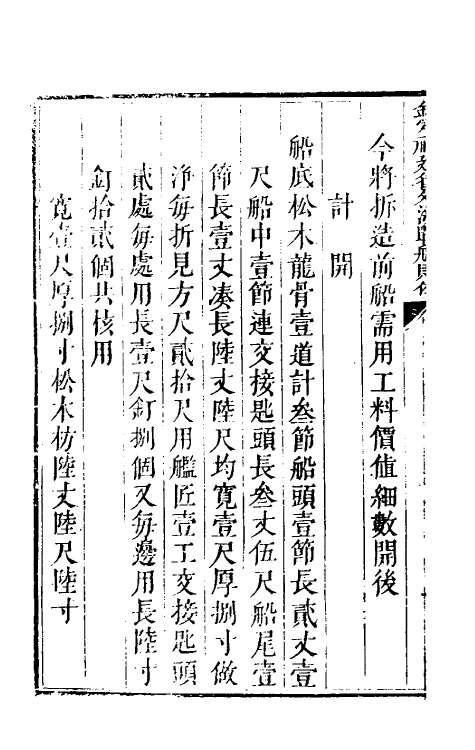 今將拆造前船需用工料價値細數開後
計開
船底松木龍骨壹道計叁節船頭壹節長貳丈壹
尺船中壹節連交接匙頭長叁丈伍尺船尾壹
節長壹丈凑長陸丈陸尺均寛壹尺厚捌寸做
淨每折見方尺貳拾尺用艦匠壹工交接匙頭
貳處每處用長壹尺釘捌個又每邊用長陸寸
釘拾貳個共核用
寛壹尺厚捌寸松木枋陸丈陸尺陸寸